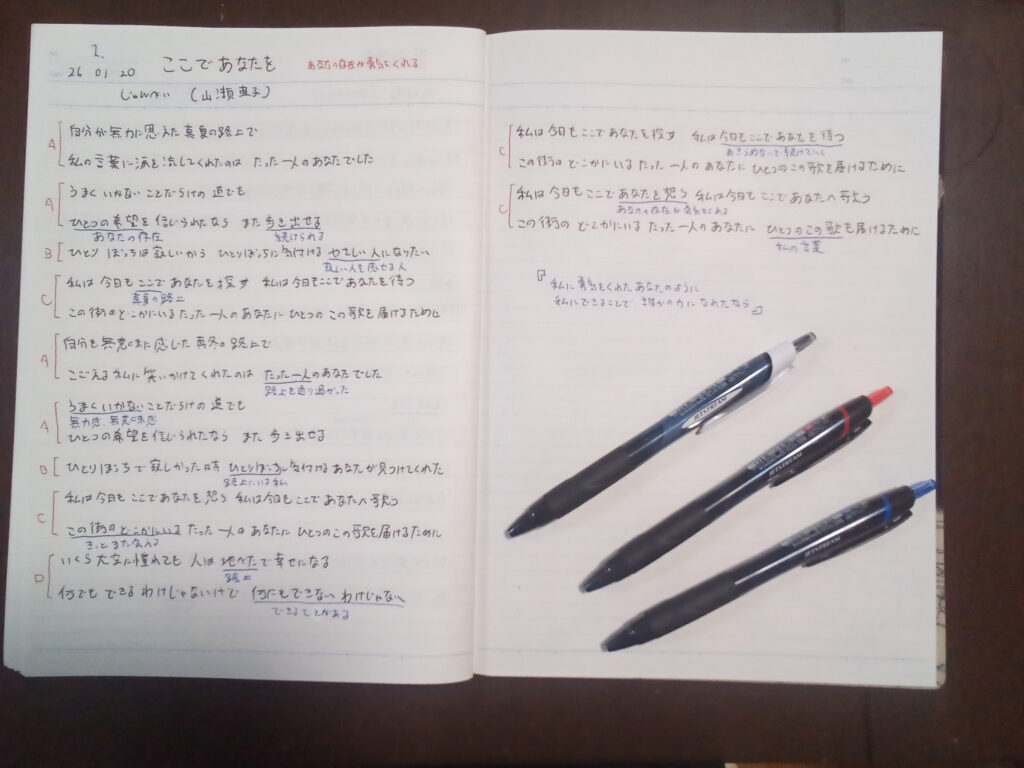 1.
26 01 20 ここであなたを あなたの存在が勇気をくれる
じゅんぺい (山瀬亜子)
A 自分が無力に思えた真夏の路上で
私の言葉に涙を流してくれたのは たった一人のあなたでした
A うまくいかないことだらけの道でも
ひとつの希望を信じられたなら また歩き出せる
あなたの存在 続けられる
B ひとりぼっちは寂しいから ひとりぼっちに気付ける やさしい人になりたい
寂しい人を癒せる人
C 私は今日もここであなたを探す 私は今日もここであなたを待つ
真夏の路上
この街のどこかにいる たった一人のあなたに ひとつのこの歌を届けるために
A 自分を無意味に感じた真冬の路上で
こごえる私に笑いかけてくれたのは たった一人のあなたでした
路上を通り過がった
A うまくいかないことだらけの道でも
無力感、無意味感
ひとつの希望を信じられたなら また歩き出せる
B ひとりぼっちで寂しかった時 ひとりぼっちに気付ける あなたが見つけてくれた
路上にいる私
C 私は今日もここであなたを想う 私は今日もここであなたへ歌う
この街のどこかにいる たった一人のあなたに ひとつのこの歌を届けるために
きっとまた会える
D いくら大空に憧れても 人は地べたで幸せになる
路上
何でもできるわけじゃないけど 何にもできないわけじゃない
できることがある
C 私は今日もここであなたを探す 私は今日もここであなたを待つ
あきらめないで続けていく
この街のどこかにいる たった一人のあなたに ひとつのこの歌を届けるために
C 私は今日もここであなたを想う 私は今日もここであなたへ歌う
あなたの存在が勇気をくれる
この街のどこかにいる たった一人のあなたに ひとつのこの歌を届けるために
私の言葉
『私に勇気をくれたあなたのように
私にできることで 誰かの力になれたなら』
JETSTREAM
JETSTREAM
JETSTREAM